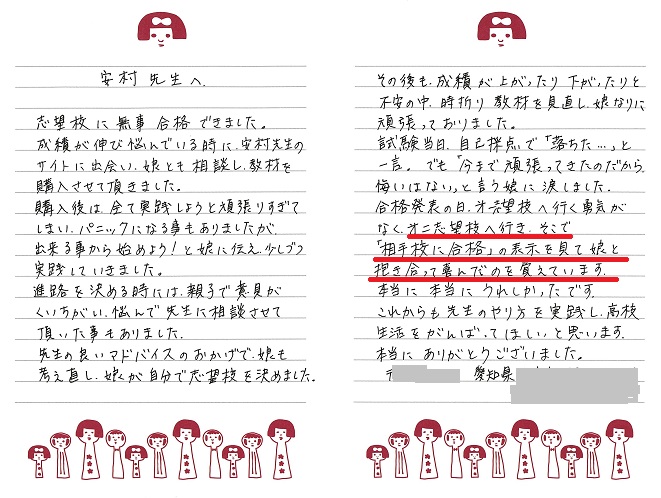 安村先生へ
志望校に無事合格できました。
成績が伸び悩んでいる時に、安村先生の
サイトに出会い、娘とも相談し、教材を
購入させて頂きました。
購入後は、全て実践しようと頑張りすぎて
しまい、パニックになる事もありましたが、
出来る事から始めよう!と娘に伝え、少しづつ
実践していきました。
進路を決める時には、親子で意見が
くいちがい、悩んで先生に相談させて
頂いた事もありました。
先生の良いアドバイスのおかげで、娘も
考え直し、娘が自分で志望校を決めました。
その後も、成績が上がったり下がったりと
不安の中、時折り教材を見直し、娘なりに
頑張っておりました。
試験当日、自己採点で「落ちた…」と
一言。でも「今まで頑張ってきたのだから
悔いはない」と言う娘に涙しました。
合格発表の日、オ志望校へ行く勇気が
なく、オ二志望校へ行き、そこで
「相手校に合格」の表示を見て娘と
抱き合って喜んだのを覚えています。
本当に本当にうれしかったです。
これからも先生のやり方を実践し、高校
生活をがんばってほしいと思います。
本当にありがとうございました。
〒 愛知県